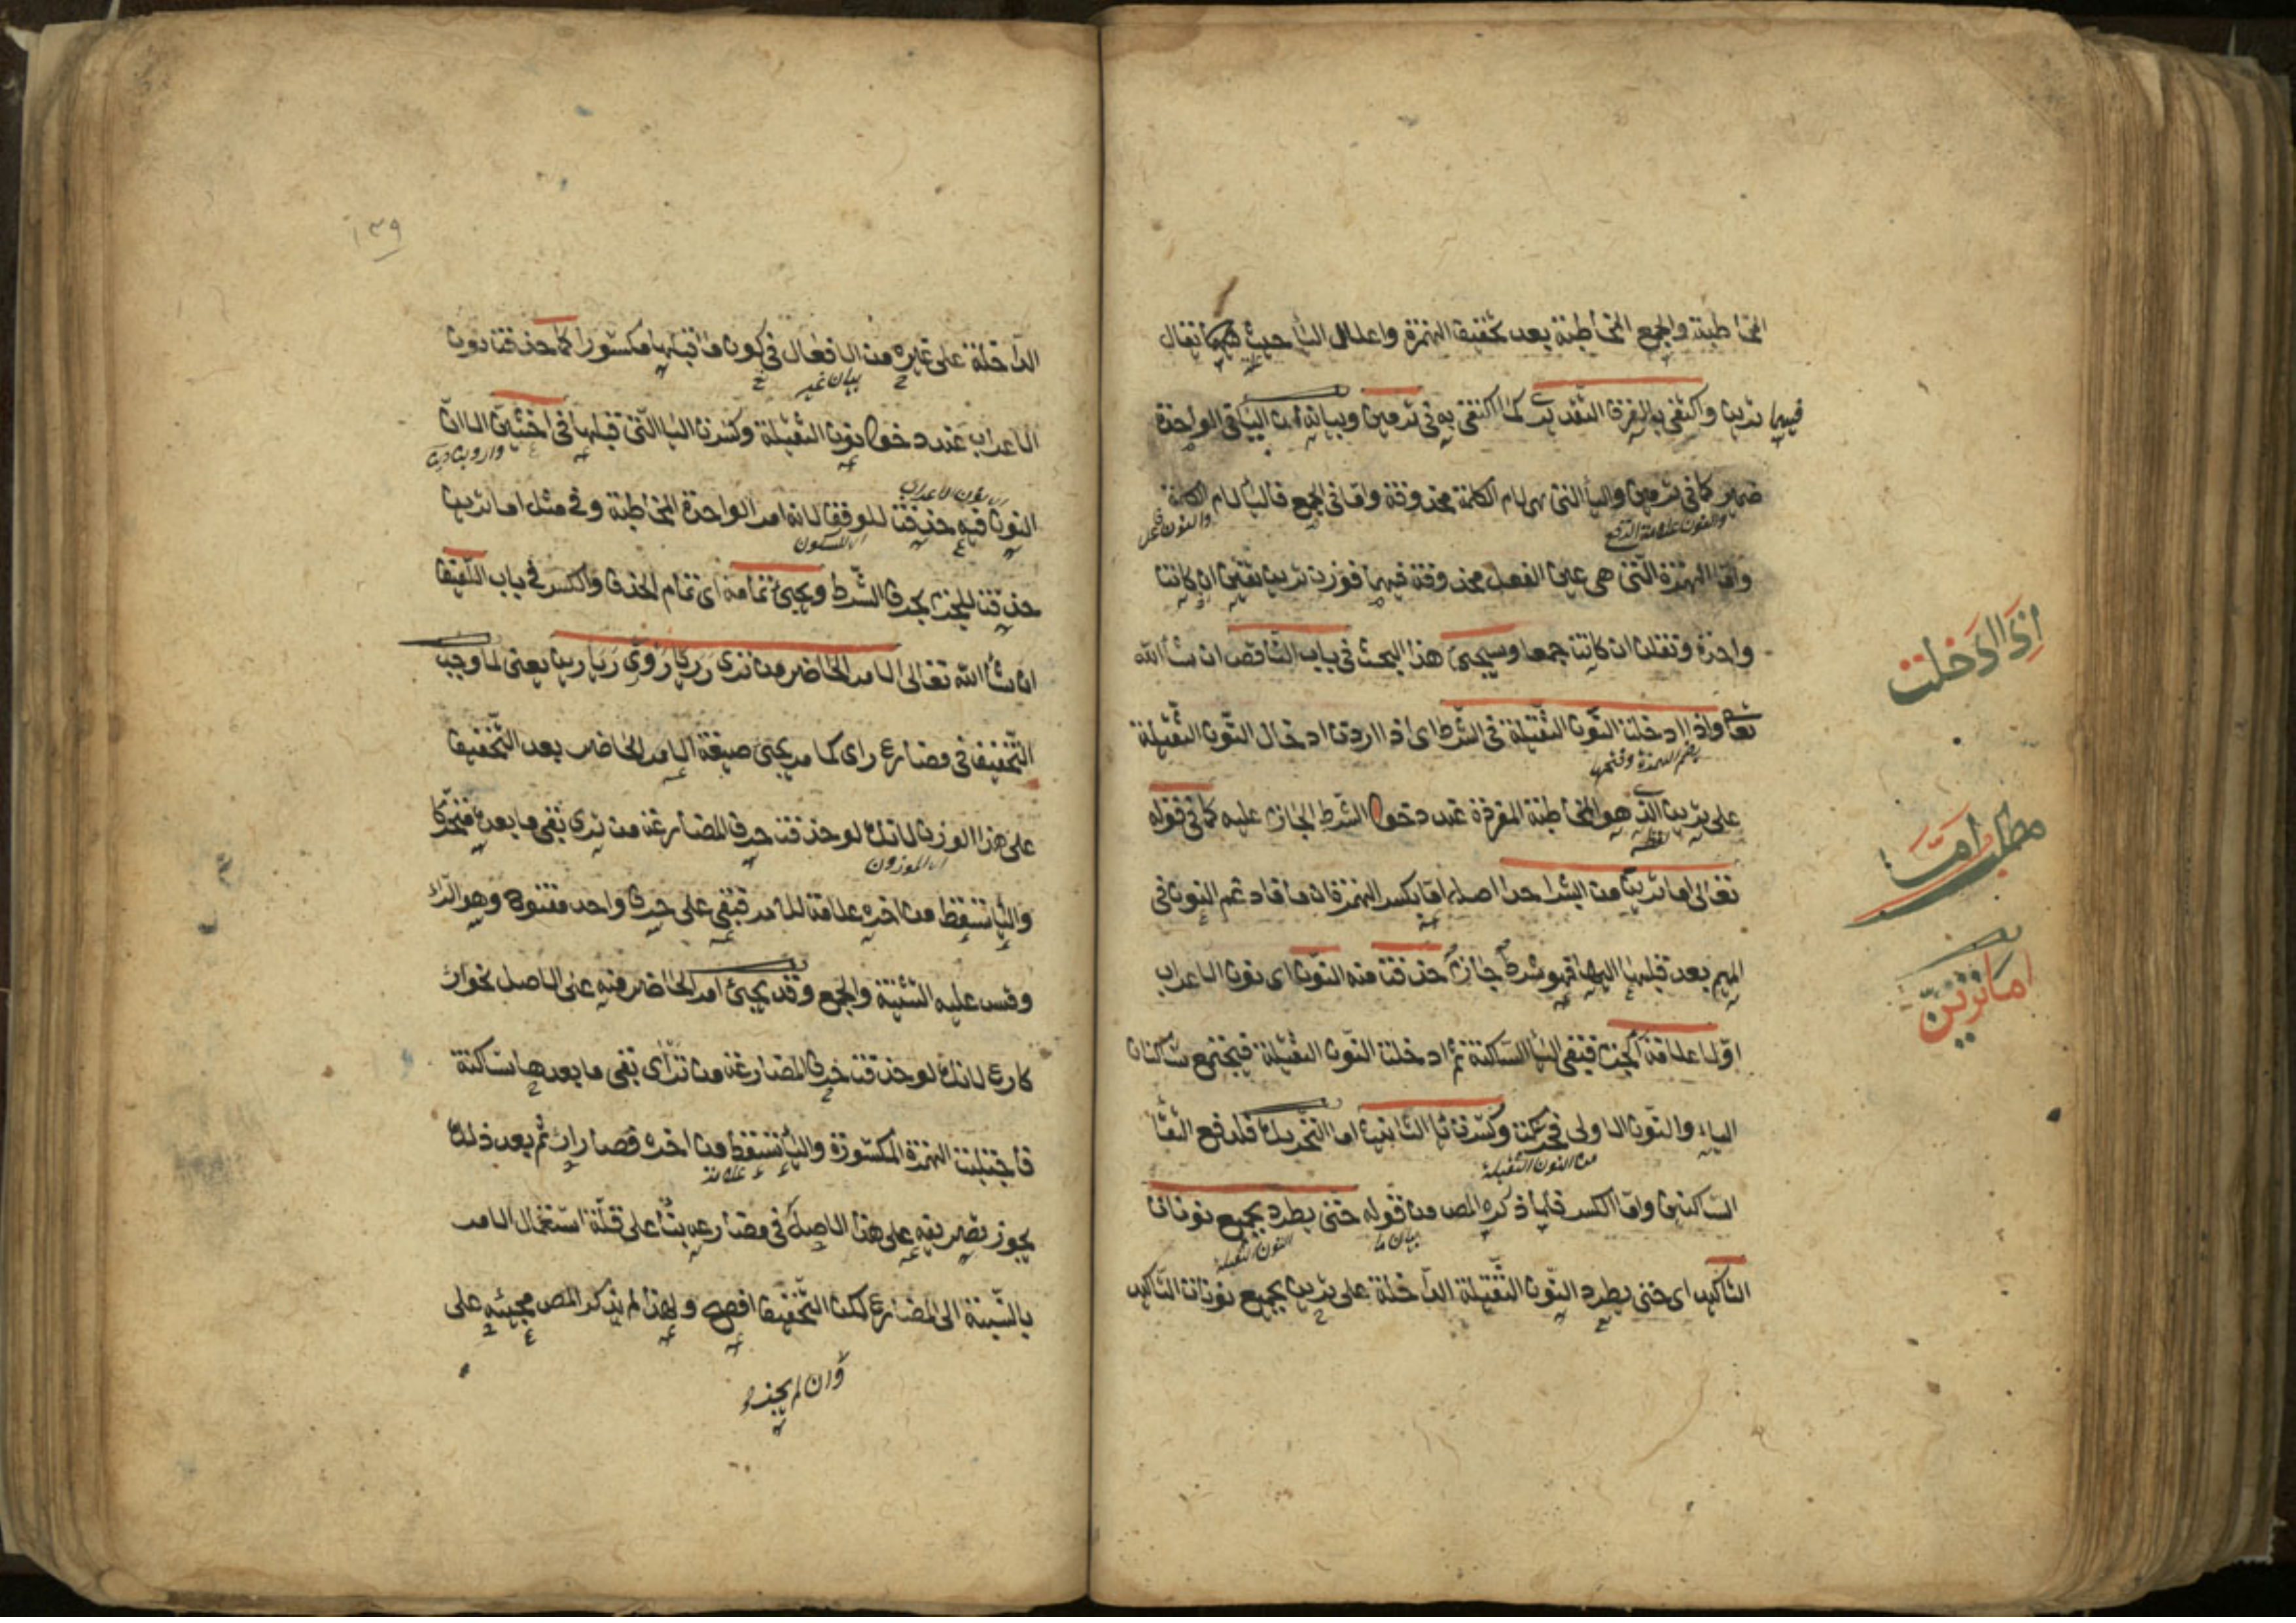 المخاطبة والجمع المخاطبة بعد تخفيف الهمزة واعلال اليا حيث يقال
فيهما ترين واكتفى بالفرق التقديرى كما اكتفى به فى ترمين وبيانه ان اليا فى الواحدة
ضمير كما فى ترمين واليا التى هى لام الكلمة محذوفة واما فى الجمع فاليا لام الكلمة
والنون علامة الرفع
والنون فاعل
واما الهمزة التى هى عين الفعل محذوفة فيهما فوزن ترين تفين ان كانت
واحدة وتفلن ان كانت جمعا وسيجئ هذا البحث فى باب الناقص ان شا الله
تعا واذا ادخلت النون الثقيلة فى الشرط اى اذا اردت ادخال النون الثقيلة
على ترين الذى هو المخاطبة المفردة عند دخول الشرط الجازم عليه كما فى قوله
تعالى اما ترين من البشر احدا اصله اما بكسر الهمزة ان ما فادغم النون فى
الميم بعد قلبها اليها فهو شرط جازم حذفت منه النون اى نون الاعراب
اولا علامة للجزم فبقى اليا الساكنة ثم ادخلت النون الثقيلة فيجتمع ساكنان
الياء والنون الاولى فحركت وكسرت يا التانيث اما التحريك فلدفع التقا
من النون الثقيلة
الساكنين واما الكسر فلما ذكره المص من قوله حتى يطرد بجميع نونات
بيان ما
النون الثقيلة
التاكيد اى حتى يطرد النون الثقيلة الداخلة على ترين بجميع نونات التاكيد
اذا ادخلت
مطلب اما
اما ترين
١٣٩
الداخلة على غيره من الافعال فى كون ما قبلها مكسورا كما حذفت نون
بيان غير
الاعراب عند دخول نون الثقيلة وكسرت اليا التى قبلها فى اخشين الا ان
اى نون الاعراب
النون فيه حذفت للوقف لانه امر الواحدة المخاطبة وفى مثل اما ترين
اى السكون
حذفت للجزم بحرف الشرط ويجئ تمامه اى تمام الحذف والكسر فى باب اللفيف
ان شا الله تعالى الامر الحاضر من ترى ر ريا روا رى ريا رين يعنى لما وجب
التخفيف فى مضارع راى كما مر يجئ صيغة الامر الحاضر بعد التخفيف
على هذا الوزن لانك لو حذفت حرف المضارعة من ترى بقى ما بعده متحركا
اى الموزون
واليا تسقط من اخره علامة للامر فبقى على حرف واحد مفتوح وهو الراء
وقس عليه التثنية والجمع وقد يجئ امر الحاضر منه على الاصل نحو ارء
كارع لانك لو حذفت حرف المضارعة من ترأى بقى ما بعدها ساكنة
فاجتلبت الهمزة المكسورة واليا تسقط من اخره فصار ارء ثم بعد ذلك
علامة
يجوز تصريفه على هذا الاصل فى مضارعه بناء على قلة استعمال الامر
بالنسبة الى المضارع لكن التخفيف افصح ولهذا لم يذكر المص مجيئه على
وان لم يجز